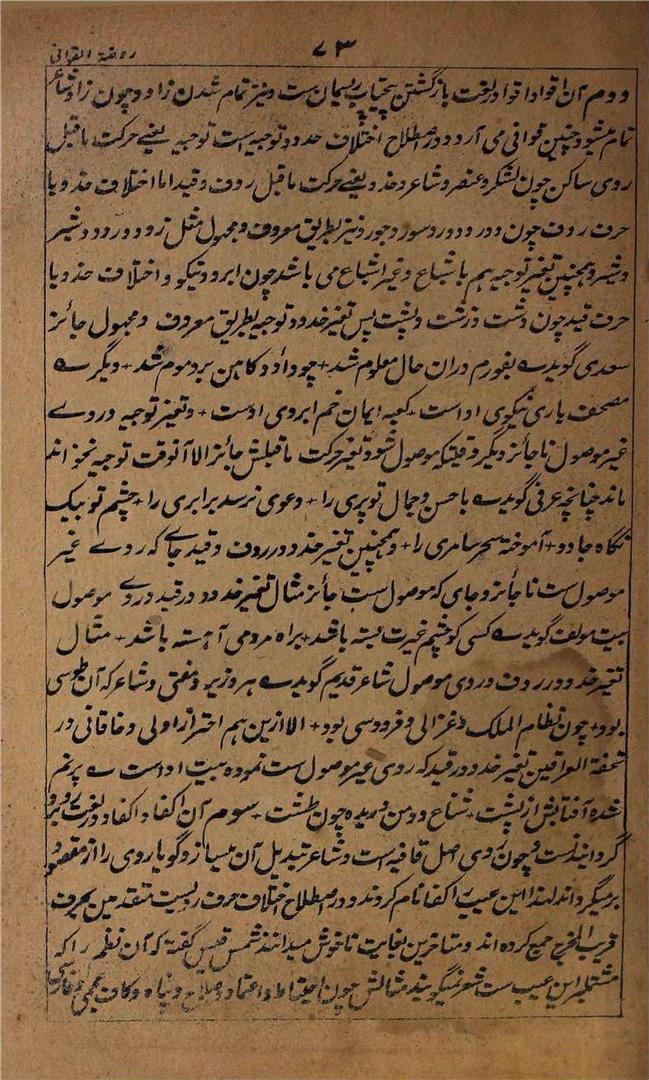 روضة القوافی
۷۳
دوم آن اقوا و اقوا در لغت بازگشتن پیچیاب ریسمان ست و نیز تمام شدن زاد و چون زاد شاعر
تمام میشود چنین قوافی می آرد و در اصطلاح اختلاف حذو و توجیه است توجیه یعنے حرکت ماقبل
روی ساکن چون لشکر و عنصر و شاعر و حذو یعنے حرکت ماقبل ردف و قید اما اختلاف حذو با
حرف ردف چون دَور و دور و سور و جور و نیز بطریق معروف و مجهول مثل زود و رود و شیر
و شیر و همچنین تغیر توجیه هم باشباع و غیر اشباع می باشد چون ابرو و نیکو و اختلاف حذو با
حرف قید چون دشت و زشت و پشت پس تغیر حذو و توجیه بطریق معروف و مجهول جائز
سعدی گوید ے بغورم دران حال معلوم شد + چو داؤد کاهن برو موم شد + دیگرے
مصحف باری نیکوی او است + کعبه ایمان خم ابروی اوست + و تغیر توجیه در روے
غیر موصول ناجائز و دیگر وقتیکه موصول شود تغیر حرکت ماقبلش جائز الا آنوقت توجیه نخواند
ماند چنانچه عرفی گوید ے با حسن و جمال تو پری را + دعوی نرسد برابری را + چشم تو بیک
نگاه جادو + آموخته سحر سامری را + و همچنین تغیر حذو در ردف و قید جاے که روے غیر
موصول ست ناجائز و جای که موصول ست جائز مثال تغیر حذو در قید و روے موصول
بیت مولف گوید ے کسی کو چشم غیرت بسته باشد + براه مردمی آهسته باشد + مثال
تغیر حذو در ردف و روی موصول شاعر قدیم گوید ے هر وزیر و مفتی و شاعر که آن طوسی
بود + چون نظام الملک و غزالی و فردوسی بود + الا ازین هم احتراز اولی و خاقانی در
تحفة العراقین تغیر حذو در قید که روی غیر موصول ست نموده بیت او است ے پر نم
شده آفتابش از پشت + شناع و ومن دمیده چون طشت + سوم آن اکفا و اکفا در لغت
گردانیدنست و چون روی اصل قافیه است و شاعر تبدیل آن میسازد گویا روی را از مقصود
برمیگرداند لهذا این عیب را اکفا نام کردند و در اصطلاح اختلاف حرف رویست متقدمین بحرف
قریب المخرج جمع کرده اند و متاخرین بغایت ناخوش میدانند شمس قیس گفته که آن نظم را که
مشتمل برین عیب ست شعر نمیگویند مثالش چون احتیاط و اعتماد و صلاح و پناه و کاف عجمی و فارسی